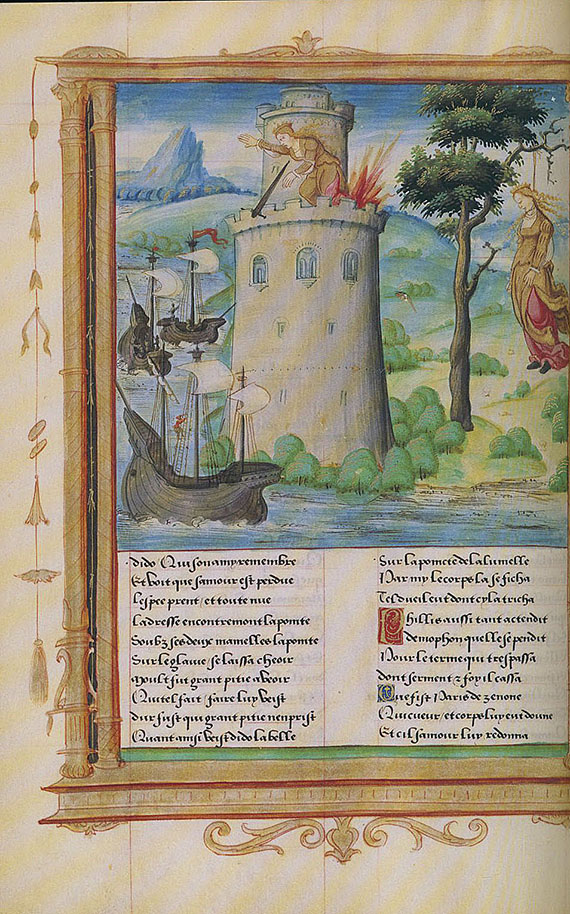 dido Qui son amy remembre
Et voit que samour est perdue
Lespee prent / et toute nue
Ladresse encontremont la poincte
Soubz ses deux mamelles la pointe
Sur le glaive se laissa cheoir
Moult fut grant pitie a veoir
Qui tel fait faire luy veist
dur fust qui grant pitie nen prist
Quant ainsi veist dido la belle
Sur la poincte de la lumelle
Parmy le corps la se ficha
Tel dueil eut dont cyl la tricha
Phillis aussi tant actendit
demophon quelle se pendit
Pour le terme qui trespassa
dont serment & foy il cassa
Que fist Paris de zenone
Qui cueur / et corps luy eut donne
Et cil samour luy redonna